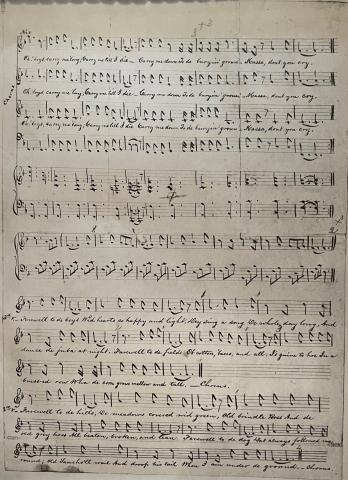 Oh! boys, carry me long, Carry me till I die — Carry me down To de buryin' groun — Massa, dont you cry.
Chorus
Oh! boys, carry me long, Carry me till I die — Carry me down To de buryin' groun — Massa, dont you cry.
Oh! boys, carry me long, Carry me till I die Carry me down To de buryin' groun — Massa, dont you cry.
Farewell to de boys Wid hearts so happy and light, Dey sing a song De whole day long, And
dance de juba at night. Farewell to de fields Ob cotton, bacco, and all: I's guine to hoe In a
bressed row Whar de corn grows mellow and tall. — Chorus.
Farewell to de hills, De meadows covered wid green, Old brindle Boss And de
old grey hoss All beaten, broken, and lean. Farewell to de dog Dat always followed me
round; Old Sancho'll wail And droop his tail When I am under de ground. — Chorus.